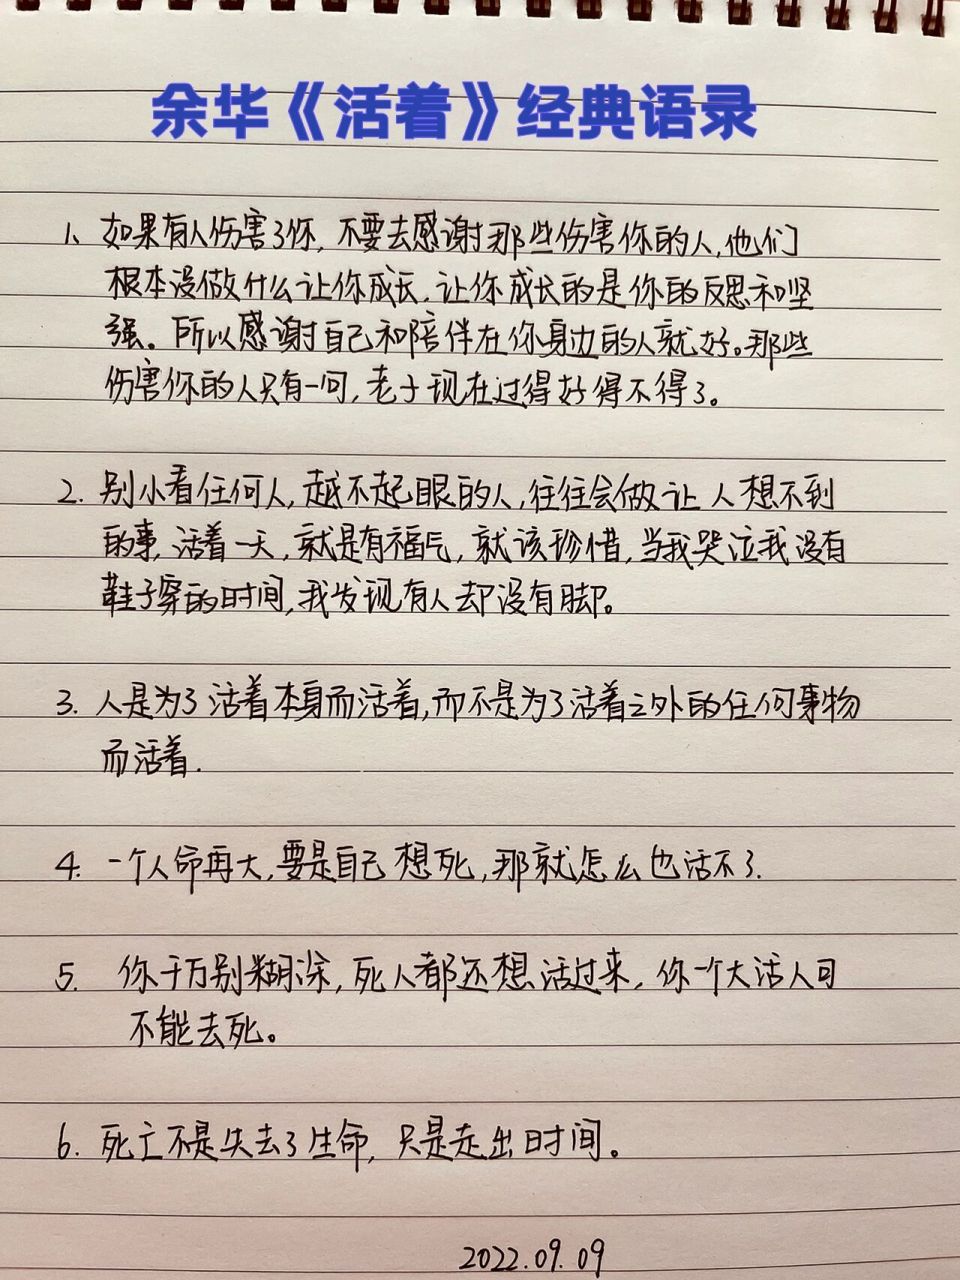 余华《活着》经典语录
1、如果有人伤害了你，不要去感谢那些伤害你的人，他们
根本没做什么让你成长，让你成长的是你的反思和坚
强。所以感谢自己和陪伴在你身边的人就好。那些
伤害你的人只有一句，老子现在过得好得不得了。
2. 别小看任何人，越不起眼的人，往往会做让人想不到
的事，活着一天，就是有福气，就该珍惜，当我哭泣我没有
鞋子穿的时间，我发现有人却没有脚。
3. 人是为了活着本身而活着，而不是为了活着之外的任何事物
而活着.
4. 一个人命再大，要是自己想死，那就怎么也活不了.
5. 你千万别糊涂，死人都还想活过来，你一个大活人可
不能去死。
6. 死亡不是失去了生命，只是走出时间。
2022.09.09